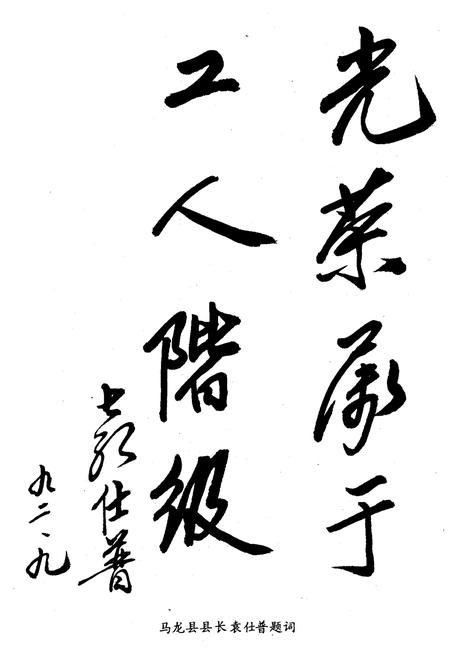 光荣属于
工人階级
袁仕普
九二·九
马龙县县长袁仕普题词